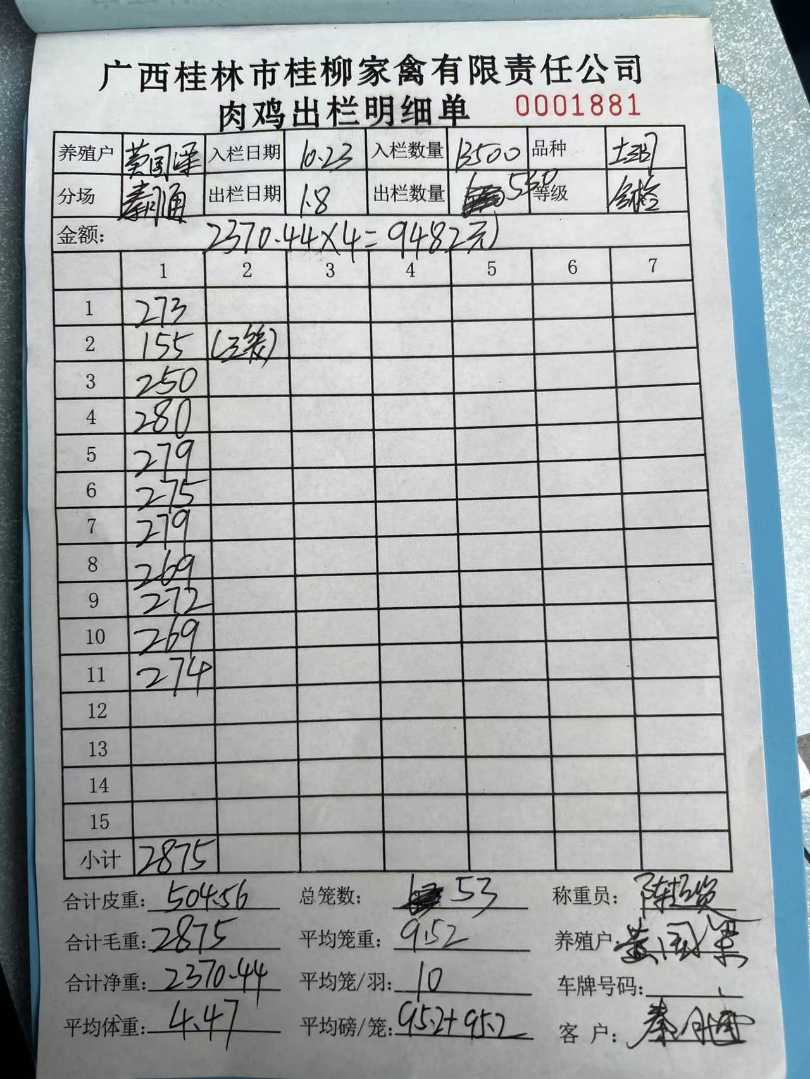 广西桂林市桂柳家禽有限责任公司
肉鸡出栏明细单 0001881
养殖户 黄国 入栏日期 10.23 入栏数量 13500 品种 土
分场 秦 通 出栏日期 1.8 出栏数量 530 等级
金额: 2370.44×4=9482元
1 2 3 4 5 6 7
1 273
2 155 (三笼)
3 250
4 280
5 279
6 275
7 279
8 269
9 272
10 269
11 274
12
13
14
15
小计 2875
合计皮重: 504.56 总笼数: 53 称重员: 陈
合计毛重: 2875 平均笼重: 9.52 养殖户: 黄国
合计净重: 2370.44 平均笼/羽: 10 车牌号码:
平均体重: 4.47 平均磅/笼: 95.2+95.2 客 户: 秦